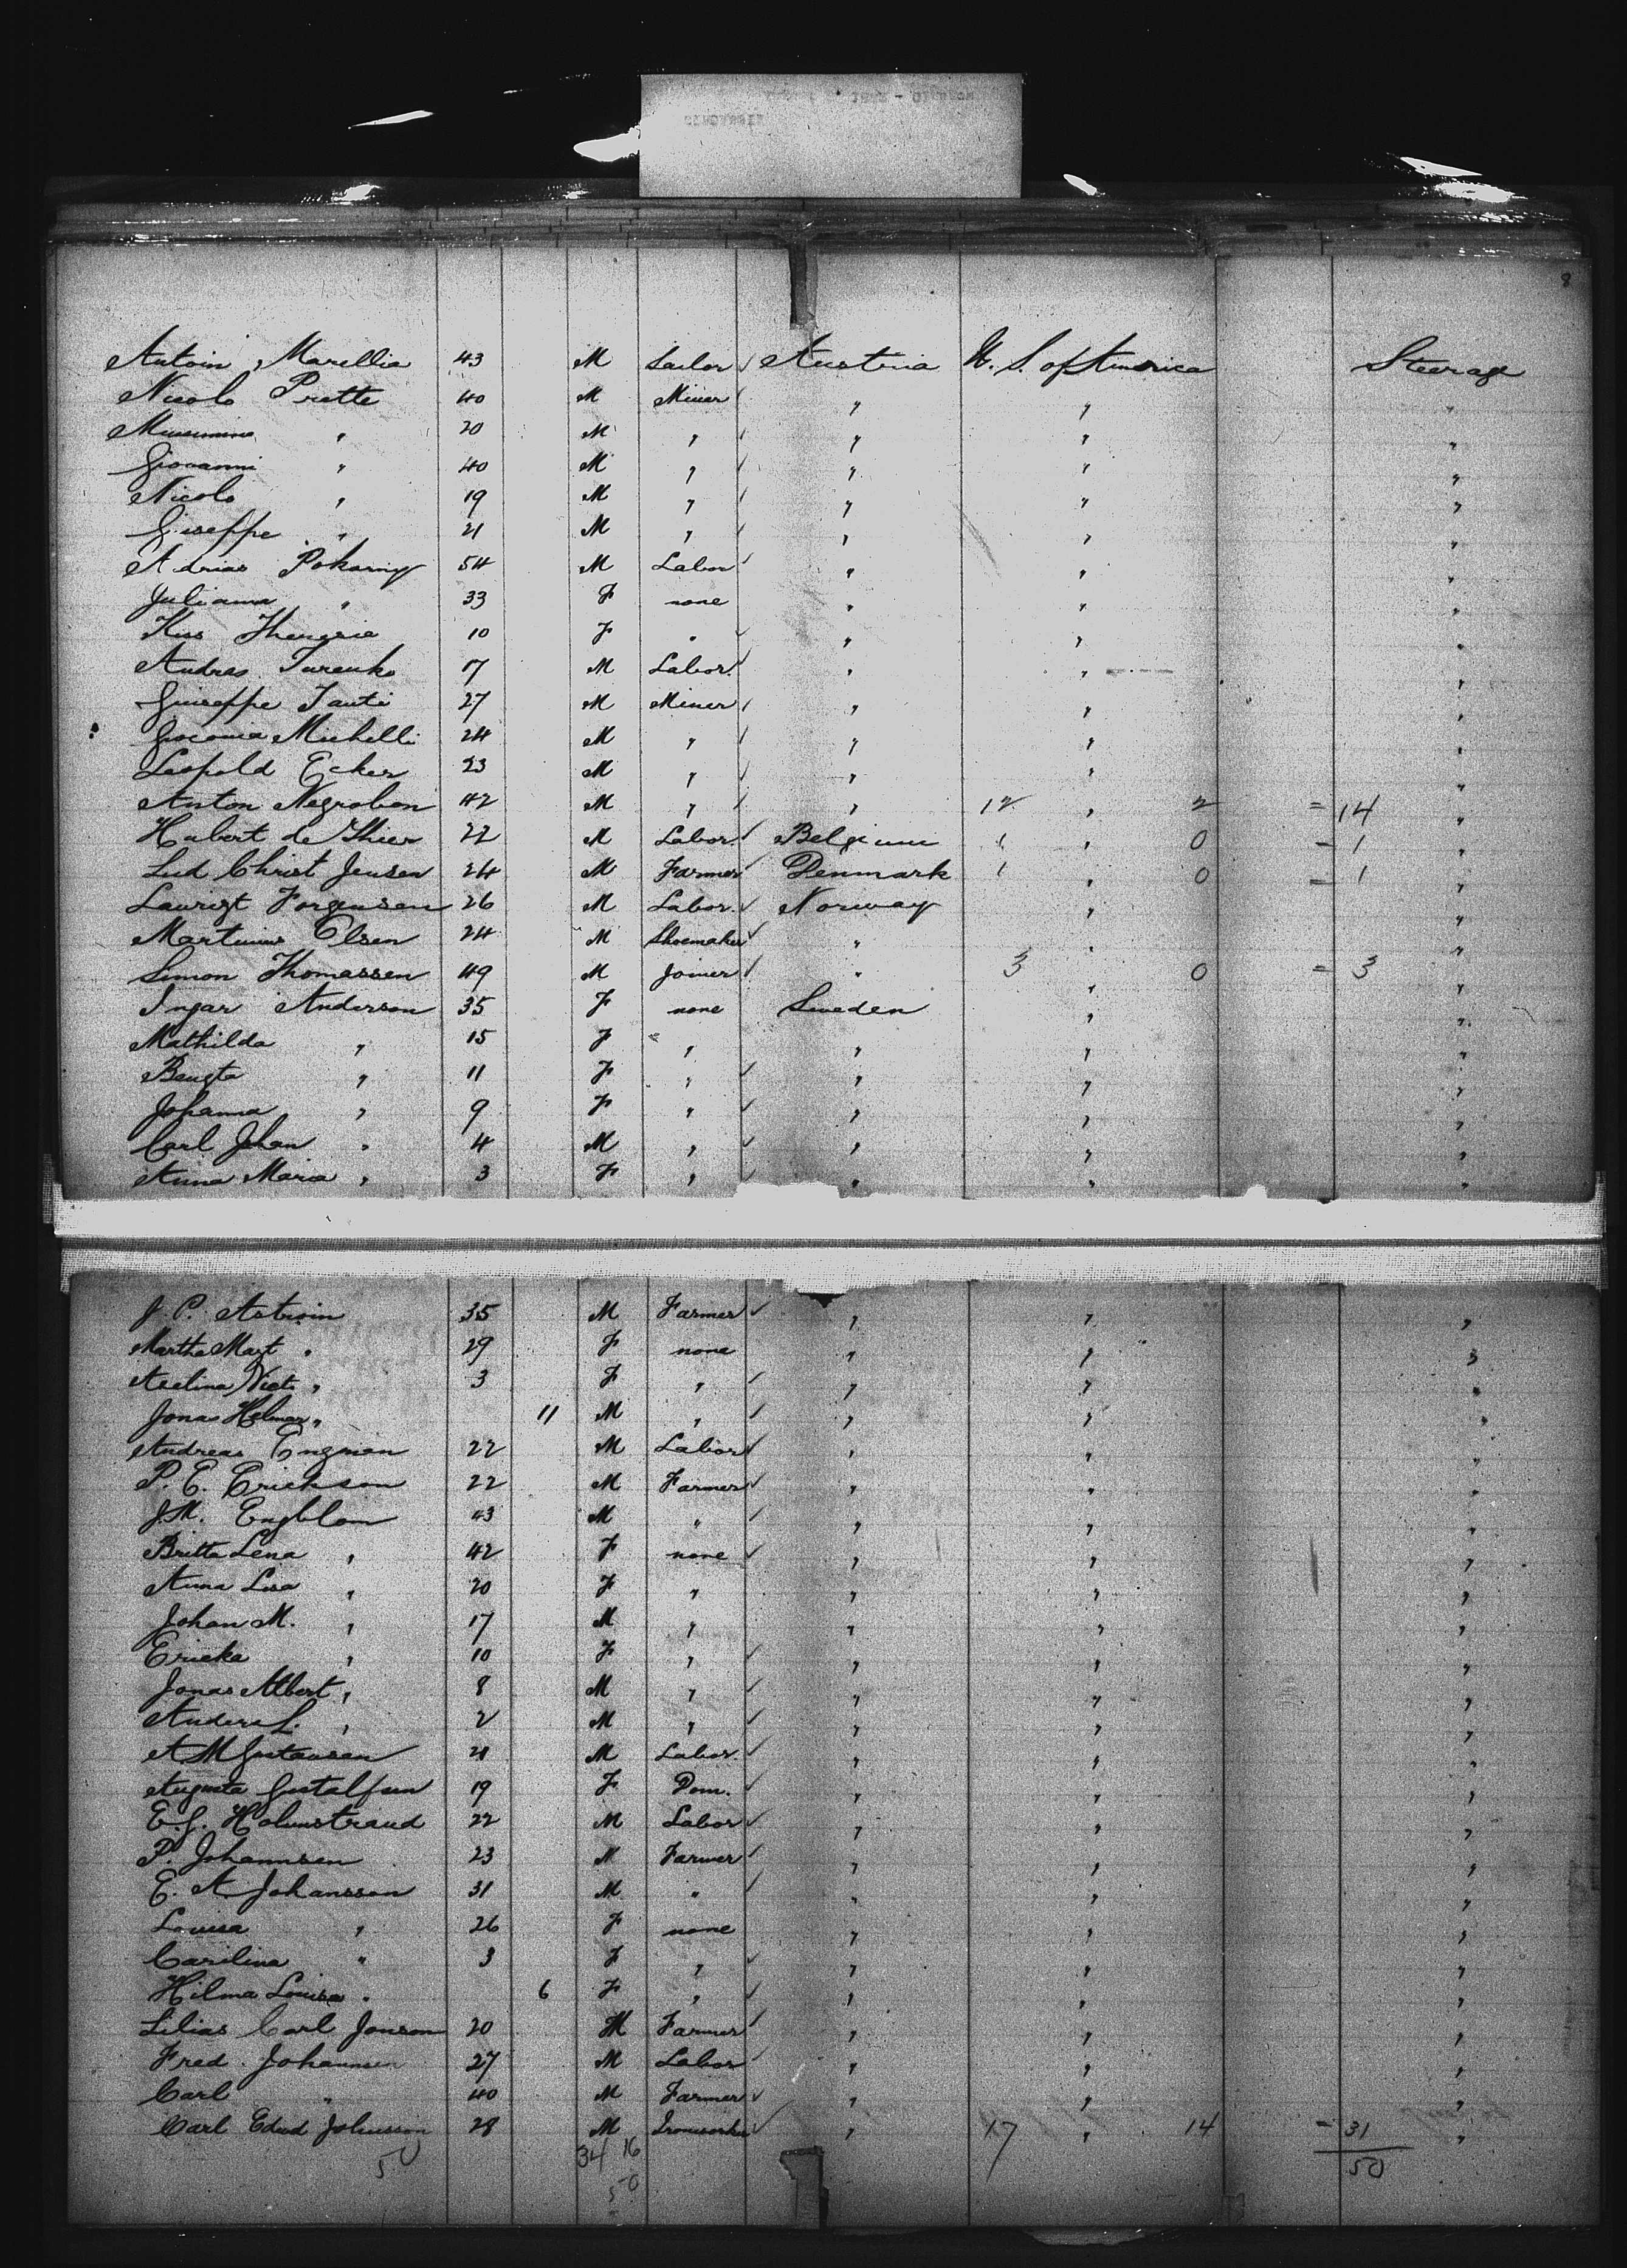 8
Antoin Marellia 43 M Sailor Austria U. S. of America Steerage
Nicolo Prette 40 M Miner " " "
" 20 M " " " "
Giovanni " 40 M " " " "
Nicolo " 19 M " " " "
Giseppe " 21 M " " " "
Adrias Pokorny 54 M Labor " " "
Julianna " 33 F none " " "
10 F " " " "
Andras Turenko 17 M Labor. " " "
Giuseppe Tanti 27 M Miner " " "
Michelli 24 M " " " "
Leopold Ecker 23 M " " " "
Anton Negrobon 42 M " " 12 " 2 = 14 "
Hubert de Thier 22 M Labor. Belgium 1 " 0 = 1 "
Lud Christ Jensen 24 M Farmer Denmark 1 " 0 = 1 "
Laurizt Jorgensen 26 M Labor. Norway " "
Martinius Olsen 24 M Shoemaker " " "
Simon Thomassen 49 M Joiner " 3 " 0 = 3 "
Ingar Anderson 35 F none Sweden " "
Mathilda " 15 F " " " "
Bengta " 11 F " " " "
Johanna " 9 F " " " "
Carl Johan " 4 M " " " "
Anna Maria " 3 F " " " "
J. P. Astroin 35 M Farmer " " "
Martha Magt " 29 F none " " "
Aelina Vict. " 3 F " " " "
Jonas Helmar " 11 M " " " "
Andreas Engman 22 M Labor " " "
P. E. Erickson 22 M Farmer " " "
J. M. Engblom 43 M " " " "
Britta Lena " 42 F none " " "
Anna Lisa " 20 F " " " "
Johan M. " 17 M " " " "
Ericka " 10 F " " " "
Jonas Albert " 8 M " " " "
Anders L. " 2 M " " " "
A. M Gustavsen 21 M Labor. " " "
Augusta Gustalfson 19 F Dom. " " "
E. G. Holmstrand 22 M Labor " " "
P. Johannsen 23 M Farmer " " "
E. A. Johansson 31 M " " " "
Louisa " 26 F none " " "
Carilina " 3 F " " " "
Hilma Louisa " 6 F " " " "
Lilias Carl Jonson 20 M Farmer " " "
Fred. Johannsen 27 M Labor " " "
Carl " 40 M Farmer " " "
Carl Edwd Johnsson 28 M Ironworker " 17 " 14 = 31 "
50 34 16 50
50